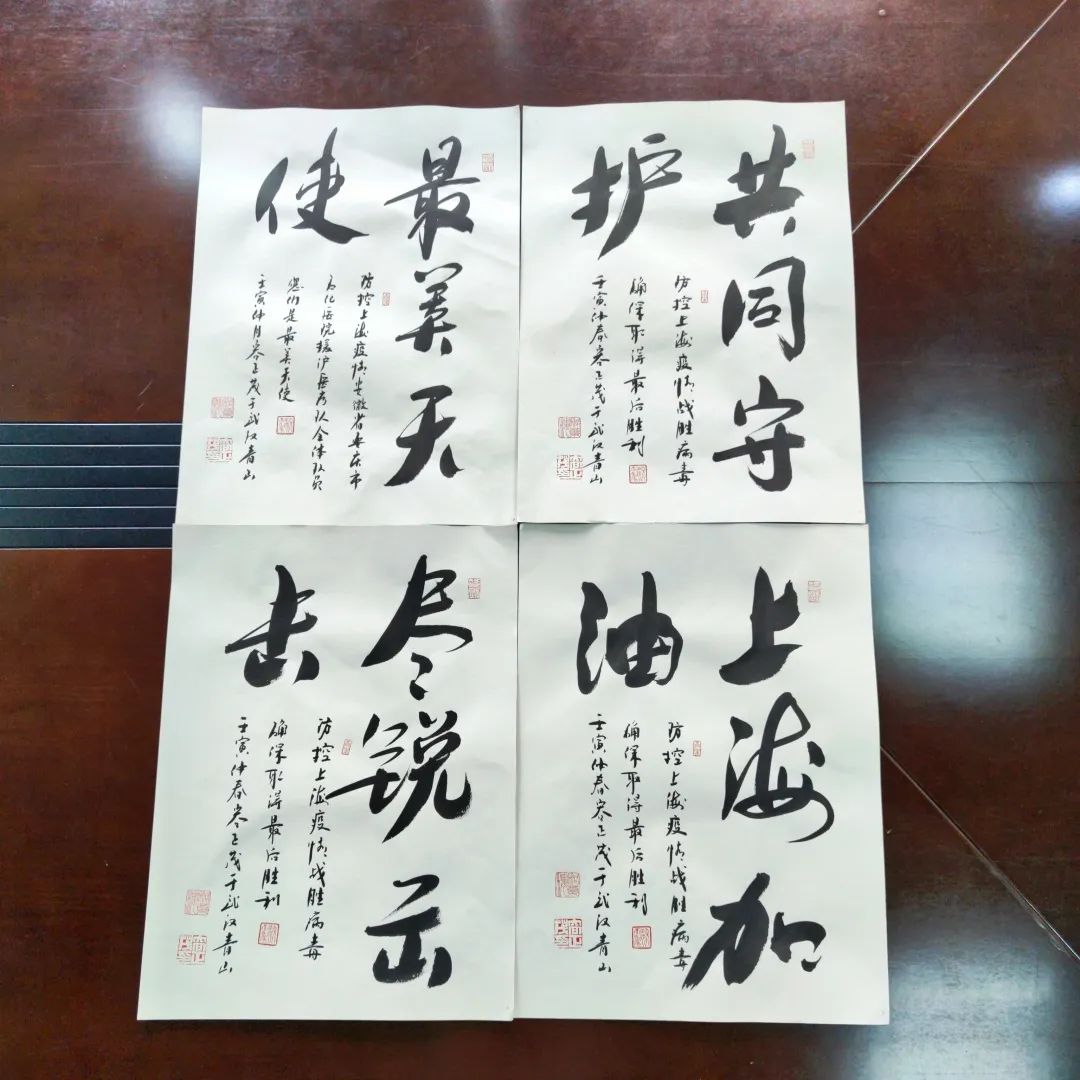 共同守
护
防控上海疫情战胜病毒
确保取得最后胜利
壬寅仲春正茂于武汉青山
最美天
使
防控上海疫情安徽省安庆市
石化医院援沪医疗队全体队员
您们是最美天使
壬寅仲月正茂于武汉青山
上海加
油
防控上海疫情战胜病毒
确保取得最后胜利
壬寅仲春正茂于武汉青山
尽锐出
击
防控上海疫情战胜病毒
确保取得最后胜利
壬寅仲春正茂于武汉青山